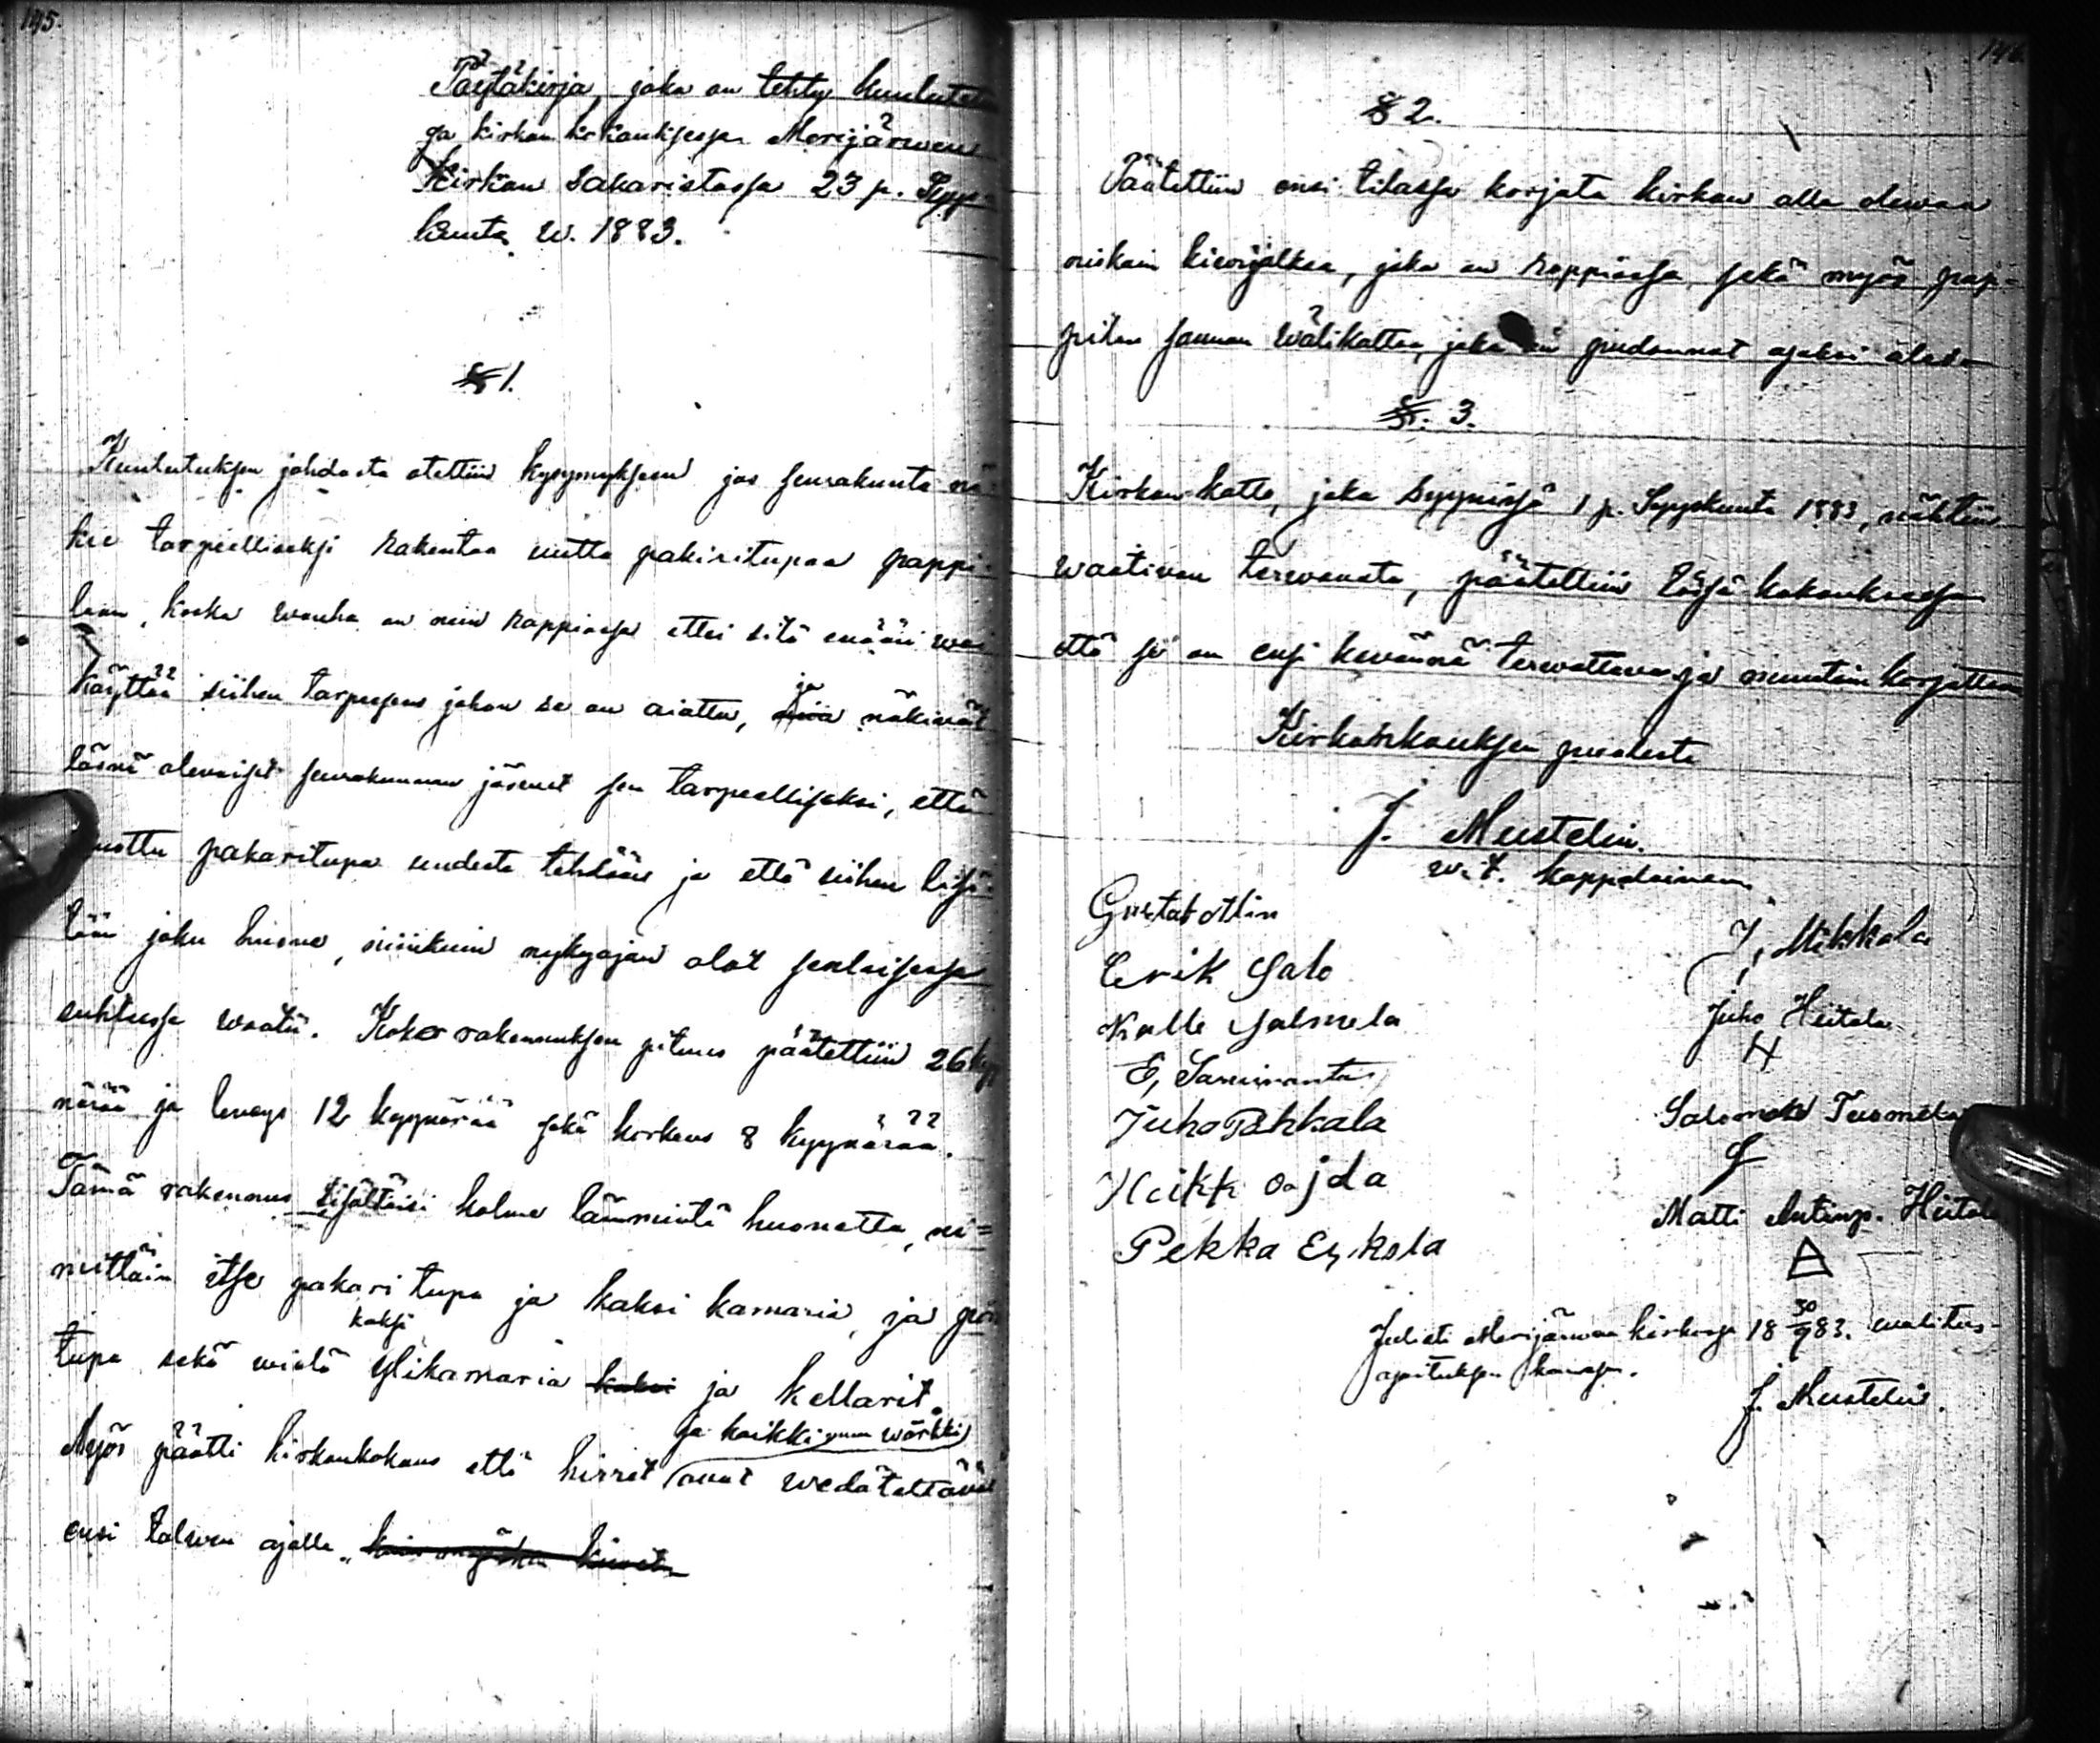 145.
Pöytäkirja, joka on tehty kuulutetu
ssa kirkon kokouksessa Merijärwen
Kirkon Sakaristossa 23 p. Syys-
kuuta w. 1883.
§ 1.
Kuulutuksen johdosta otettiin kysymykseen jos seurakunta nä-
kee tarpeelliseksi rakentaa uutta pakaritupaa pappi-
laan, koska wanha on niin rappiossa ettei sitä enään woi
käyttää siihen tarpeesen johon se on aiottu, ja näkiwät
läsnä olewaiset seurakunnan jäsenet sen tarpeelliseksi, että
mottu pakaritupa uudesta tehdään ja että siihen lisä-
tään joku huone, niinkuin nykyajan olot senlaisessa
suhteessa waatii. Koko rakennuksen pituus päätettiin 26 kyy
närää ja leweys 12 kyynärää sekä korkeus 8 kyynärää.
Tämä rakennus sisältäisi kolme lämmintä huonetta, ni=
mittäin itse pakari tupa ja kaksi kamaria, ja
kaksi
tupa sekä wielä ylikamaria kaksi ja kellarit.
ja kaikki muu wärkki
Myös päätti kirkonkokous että hirret owat wedätettäwät
ensi talwen ajalla
146
§ 2.
Päätettiin ensi tilassa korjata kirkon alla olewaa
kiwijalkaa, joka on rappiossa sekä myös pap-
pilan saunan wälikattoa, joka on pudonnut ajaksi alas.
§. 3.
Kirkon katto, joka Syynissä 1 p. Syyskuuta 1883, nähtiin
waatiwan terwausta, päätettiin tässä kokouksessa
että se on ensi kewännä terwattawa ja muutoin korjattawa
Kirkonkouksen puolesta
J. Mustelin.
w. t. kappalainen
Gustaf Ollin
Erik Salo
Kalle Jalmela
E, Sarmiranta
Juho Pahkala
Heikk Oojda
Pekka Eskola
J, Mikkola
Juho Hiitola
H
Salomoni Tuomela
Matti Antinp. Hiitola
Julisti Merijärwen kirkossa 18 30/9 83. walitus-
osoituksen kanssa.
J. Mustelin.